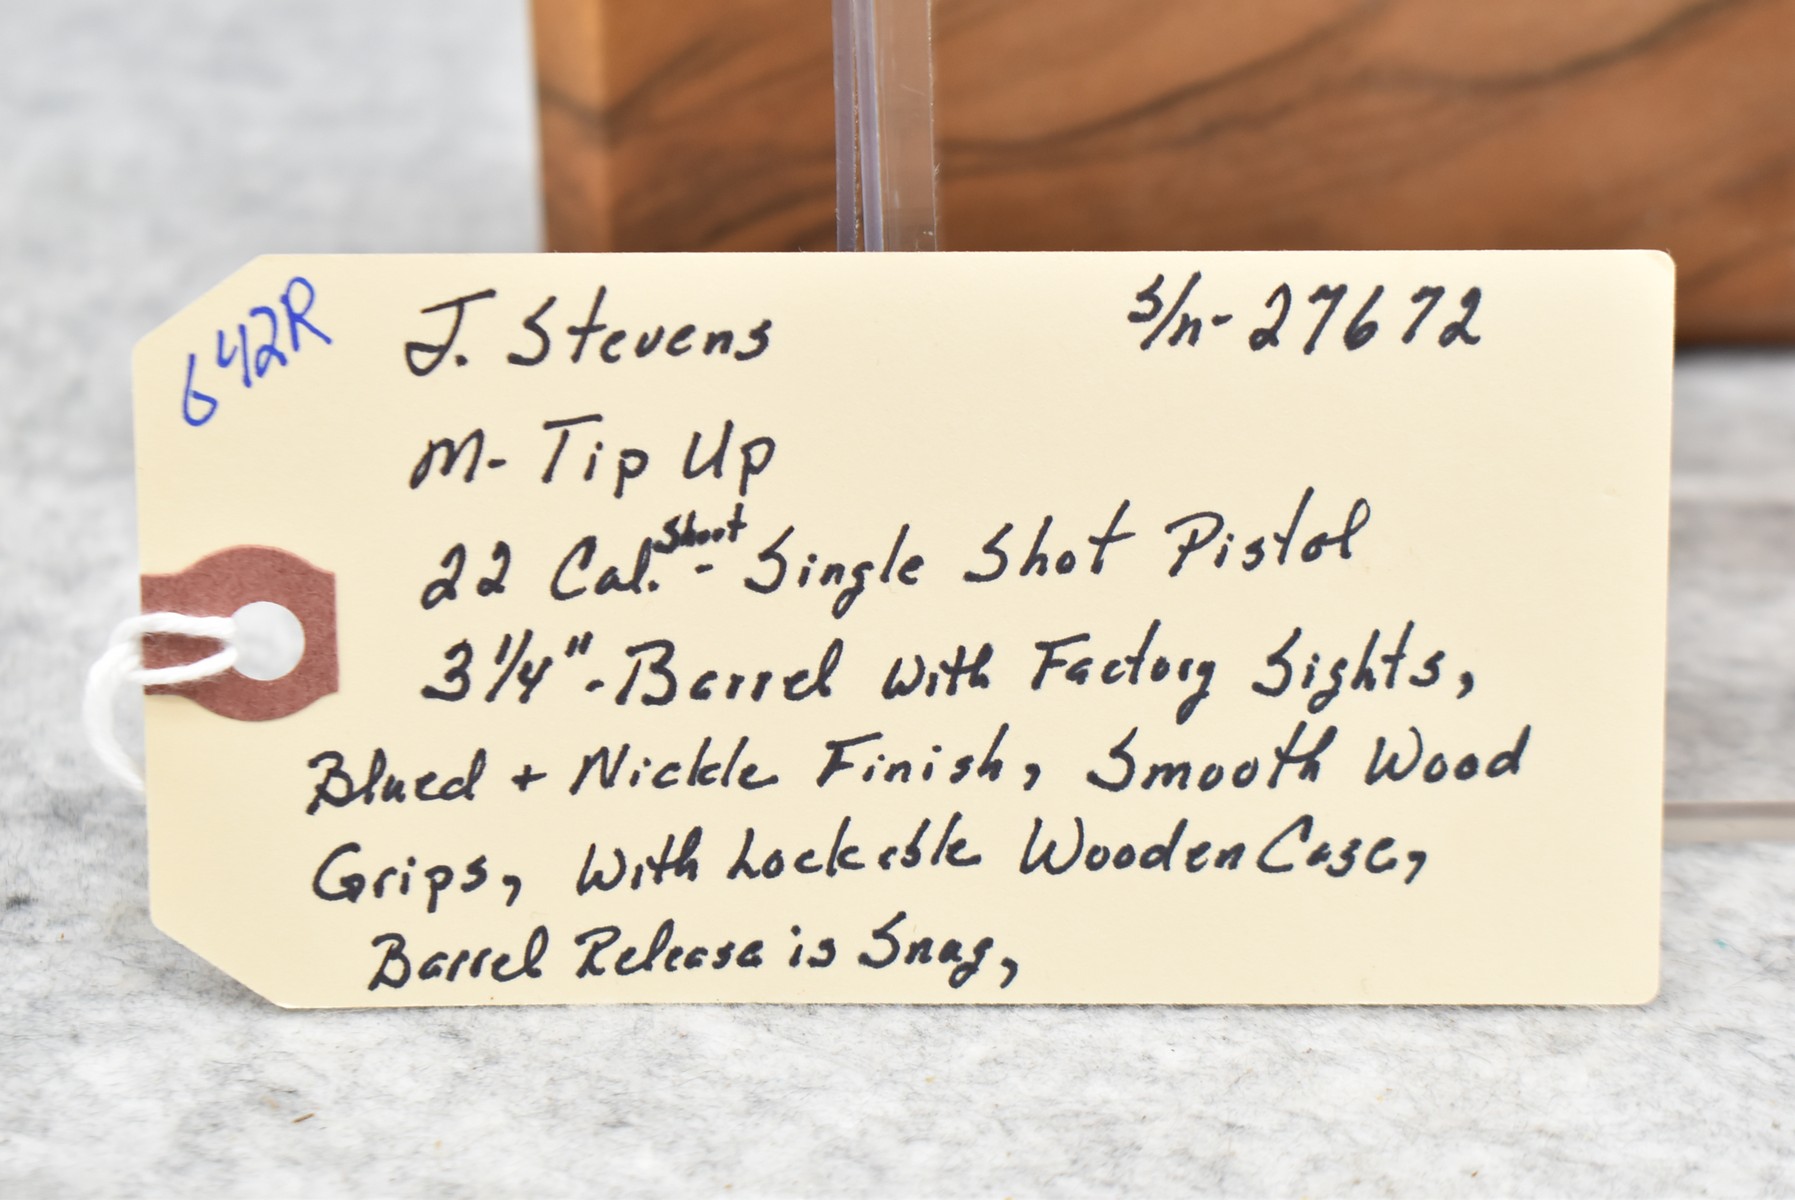 642R
J. Stevens s/n- 27672
M- Tip Up
22 Cal. Short - Single Shot Pistol
3 1/4" - Barrel with Factory Sights,
Blued + Nickle Finish, Smooth Wood
Grips, With Lockable Wooden Case,
Barrel Release is Snug,